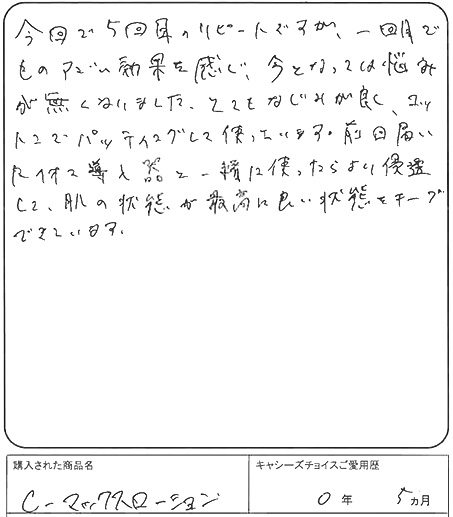 今回で5回目のリピートですが、一回目で
ものすごい効果を感じ、今となっては悩み
が無くなりました。とてもなじみが良く、コッ
トンでパッティングして使っています。前回届い
たイオン導入器と一緒に使ったらより浸透
して、肌の状態が最高に良い状態をキープ
できています。
購入された商品名
キャシーズチョイスご愛用歴
C-マックスローション
0年 5ヵ月